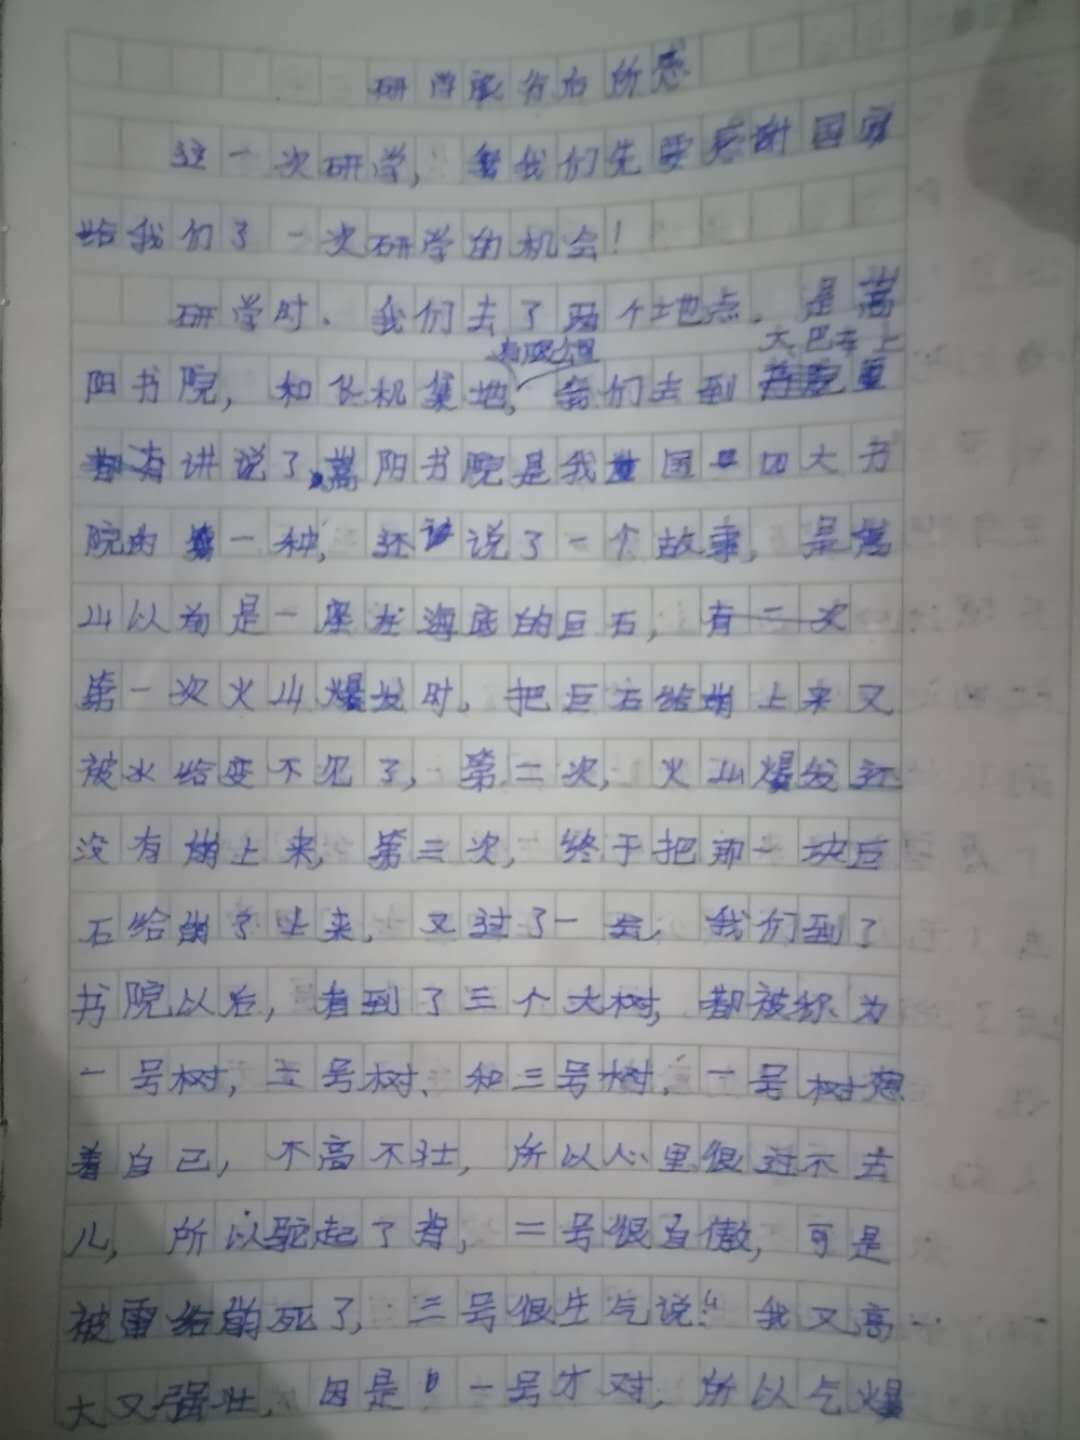 研学旅行有所感
这一次研学，我们先要感谢国家
给我们了一次研学的机会！
研学时．我们去了两个地点．是嵩
有限公司
大巴车上
阳书院，和长机集地，我们去到
讲说了嵩阳书院是我国四大书
院的第一种，还说了一个故事，是嵩
山以前是一座在海底的巨石，有一次
第一次火山爆发时．把巨石给蹦上来又
被水给变不见了，第二次，火山爆发还
没有蹦上来，第三次，终于把那一块巨
石给蹦了上来，又过了一会，我们到了
书院以后，看到了三个大树，都被称为
一号树，二号树、和三号树．一号树想
着自己，不高不壮，所以心里很过不去
儿，所以驼起了背，二号很自傲，可是
被雷给劈死了，三号很生气说：“我又高
大又强壮，因是一号才对，所以气爆